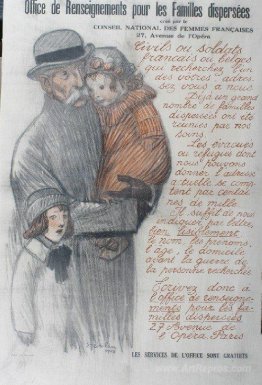 Office de Renseignements pour les Familles dispersées
créé par le
CONSEIL NATIONAL DES FEMMES FRANÇAISES
27, Avenue de l'Opéra
Civils ou soldats
français ou belges
qui recherchez l'un
des vôtres, adres
sez vous à nous
Déjà un grand
nombre de familles
dispersées ont été
réunies par nos
soins.
Les évacués
ou réfugiés dont
nous pouvons
donner l'adresse
actuelle se comp
tent par centai
nes de mille
Il suffit de nous
indiquer par lettre,
bien lisiblement
le nom, les prénoms,
l'age, le domicile
avant la guerre de
la personne recherchée
Ecrivez donc à
l'office de renseigne-
ments pour les fa-
milles dispersées
27 Avenue de
l'Opéra Paris
LES SERVICES DE L'OFFICE SONT GRATUITS